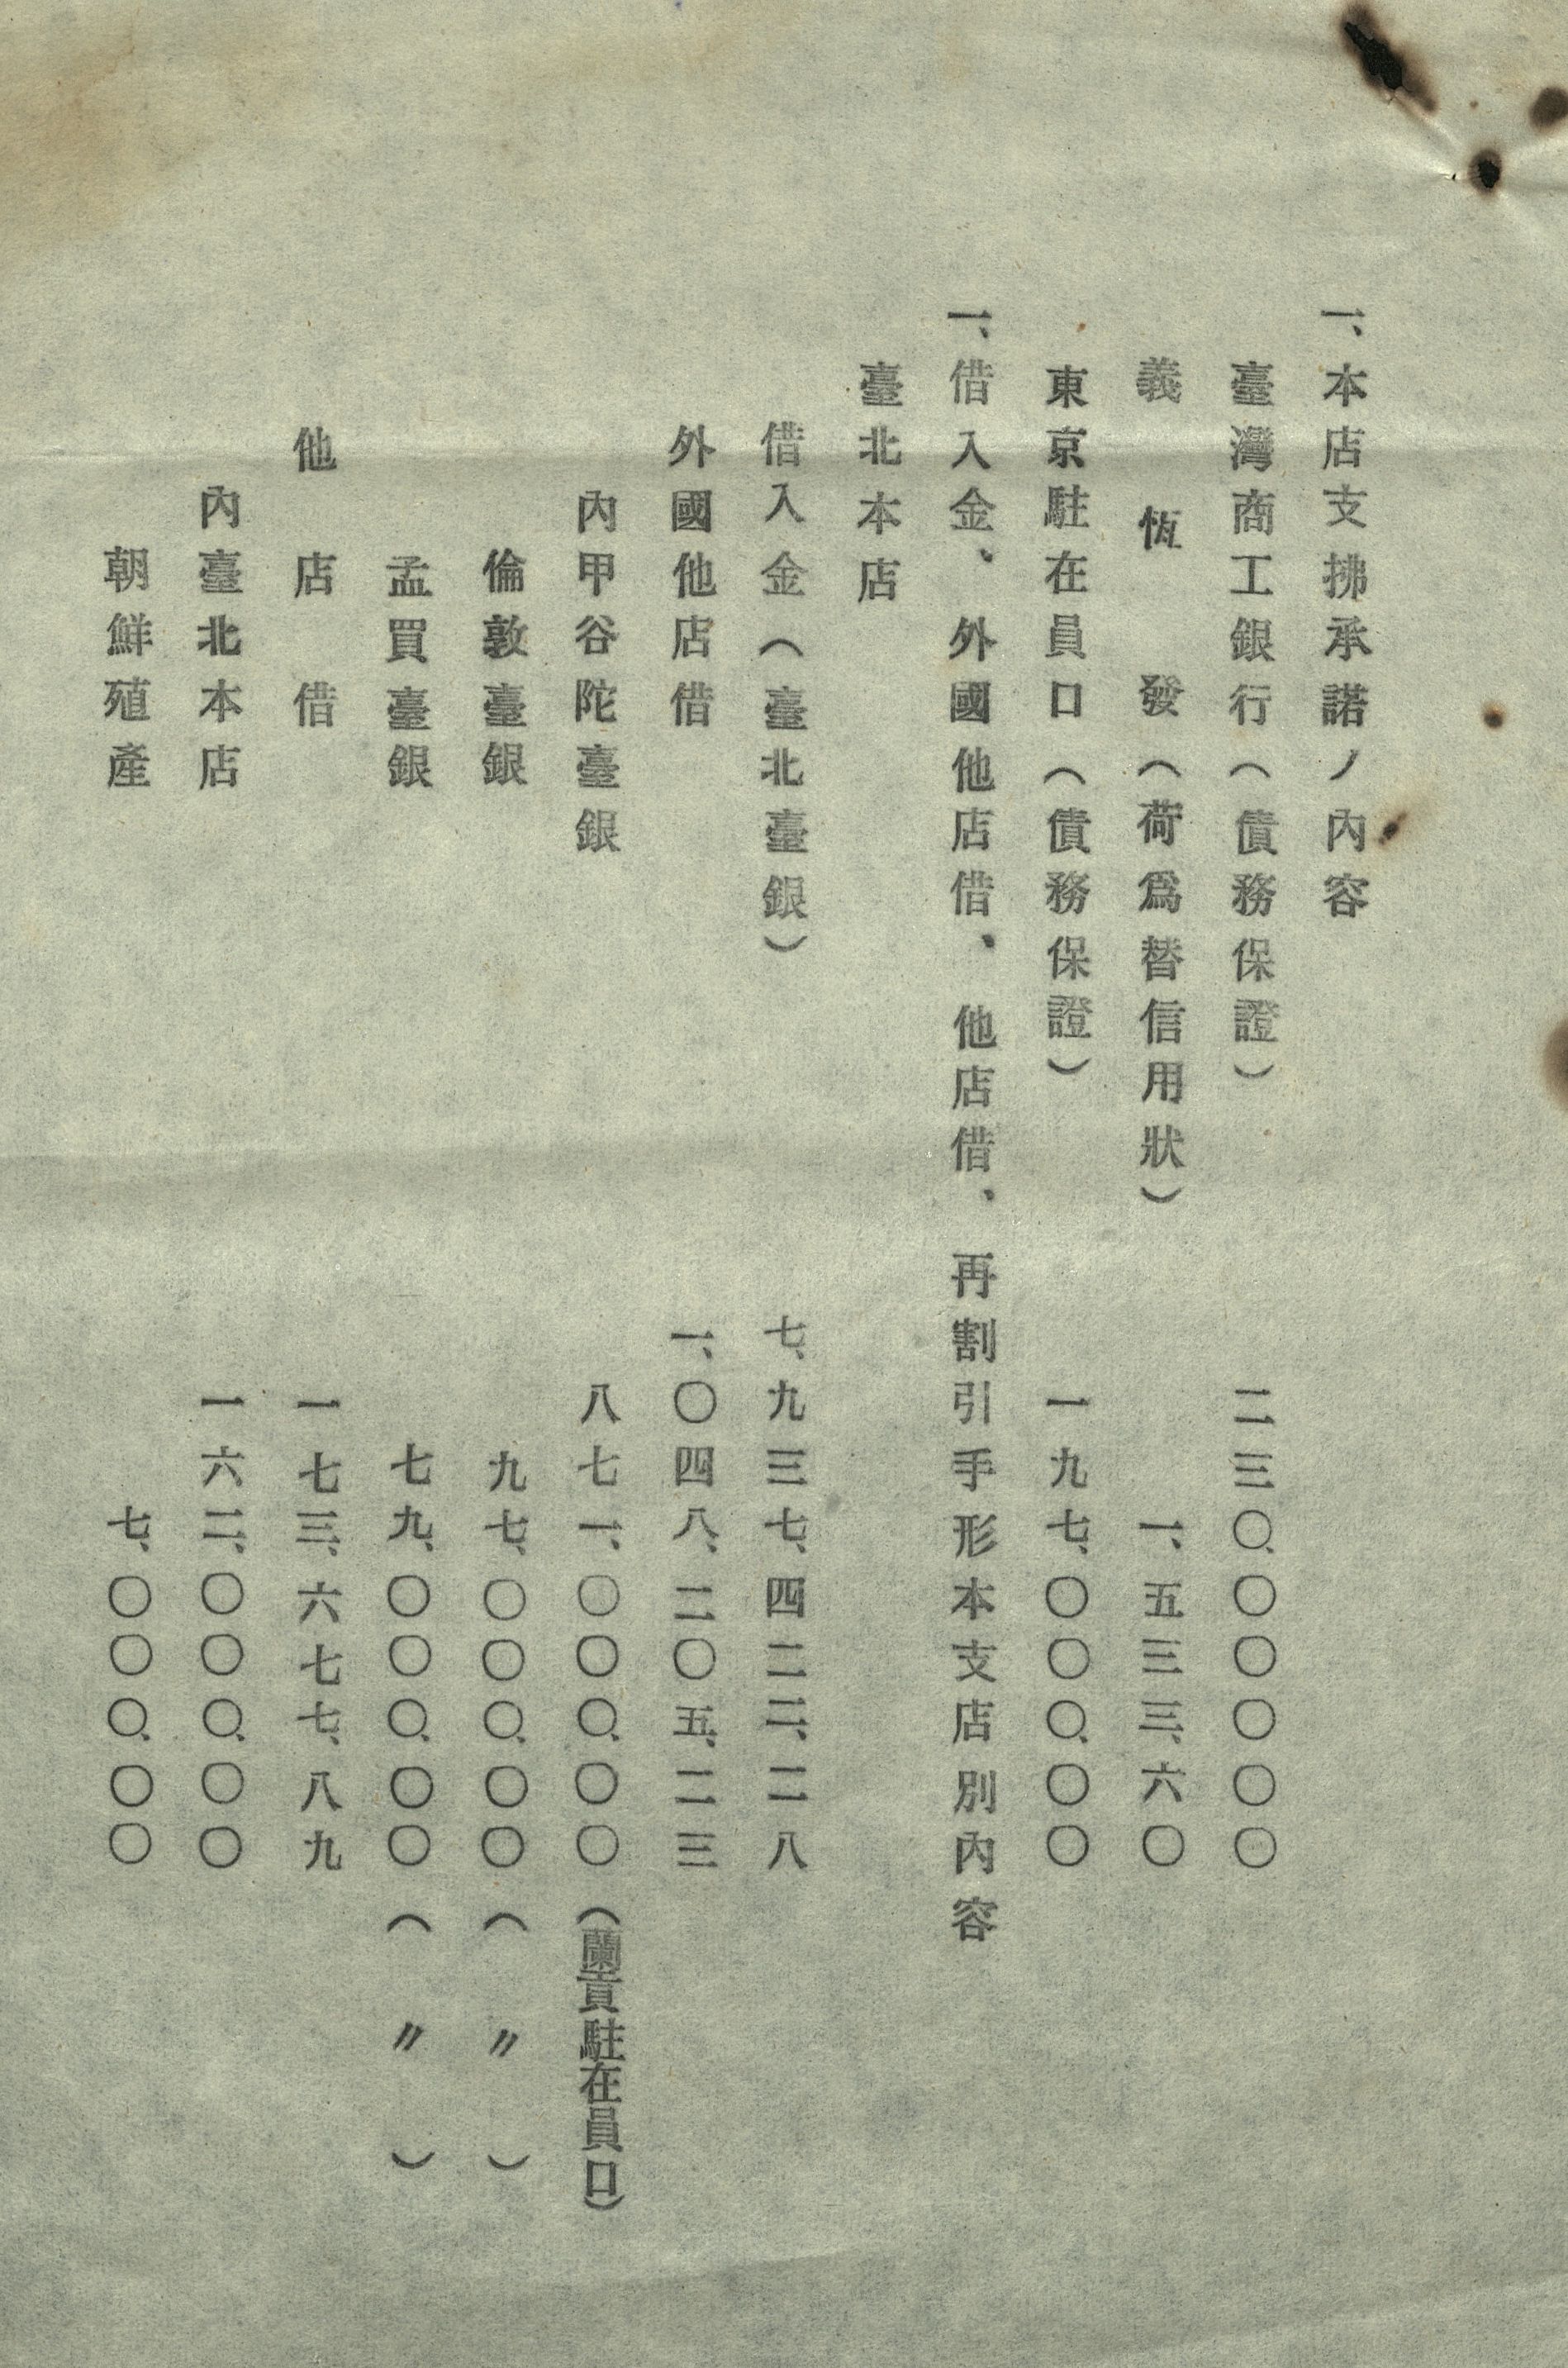 一、本店支拂承諾ノ內容
臺灣商工銀行（債務保證）　二三〇、〇〇〇、〇〇
義恆發（荷爲替信用狀）　一、五三三、六〇
東京駐在員口（債務保證）　一九七、〇〇〇、〇〇
一、借入金、外國他店借、他店借、再割引手形本支店別內容
臺北本店
借入金（臺北臺銀）　七、九三七、四二二、二八
外國他店借　一、〇四八、二〇五、二三
內甲谷陀臺銀　八七一、〇〇〇、〇〇（蘭貢駐在員口）
倫敦臺銀　九七、〇〇〇、〇〇（〃）
孟買臺銀　七九、〇〇〇、〇〇（〃）
他店借　一七三、六七七、八九
內臺北本店　一六二、〇〇〇、〇〇
朝鮮殖產　七、〇〇〇、〇〇